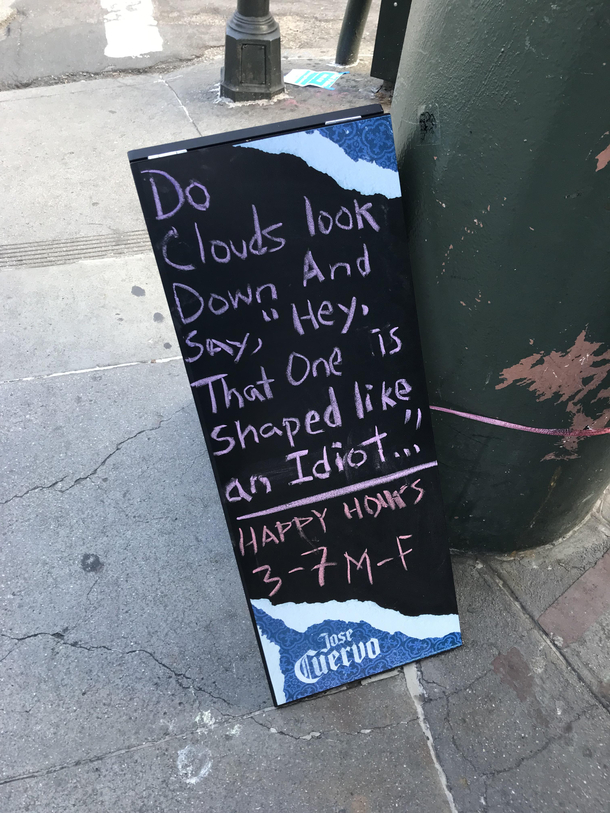 Do
Clouds look
Down And
Say, "Hey,
That One is
Shaped like
an Idiot..."
HAPPY HOURS
3-7 M-F
Jose
Cuervo